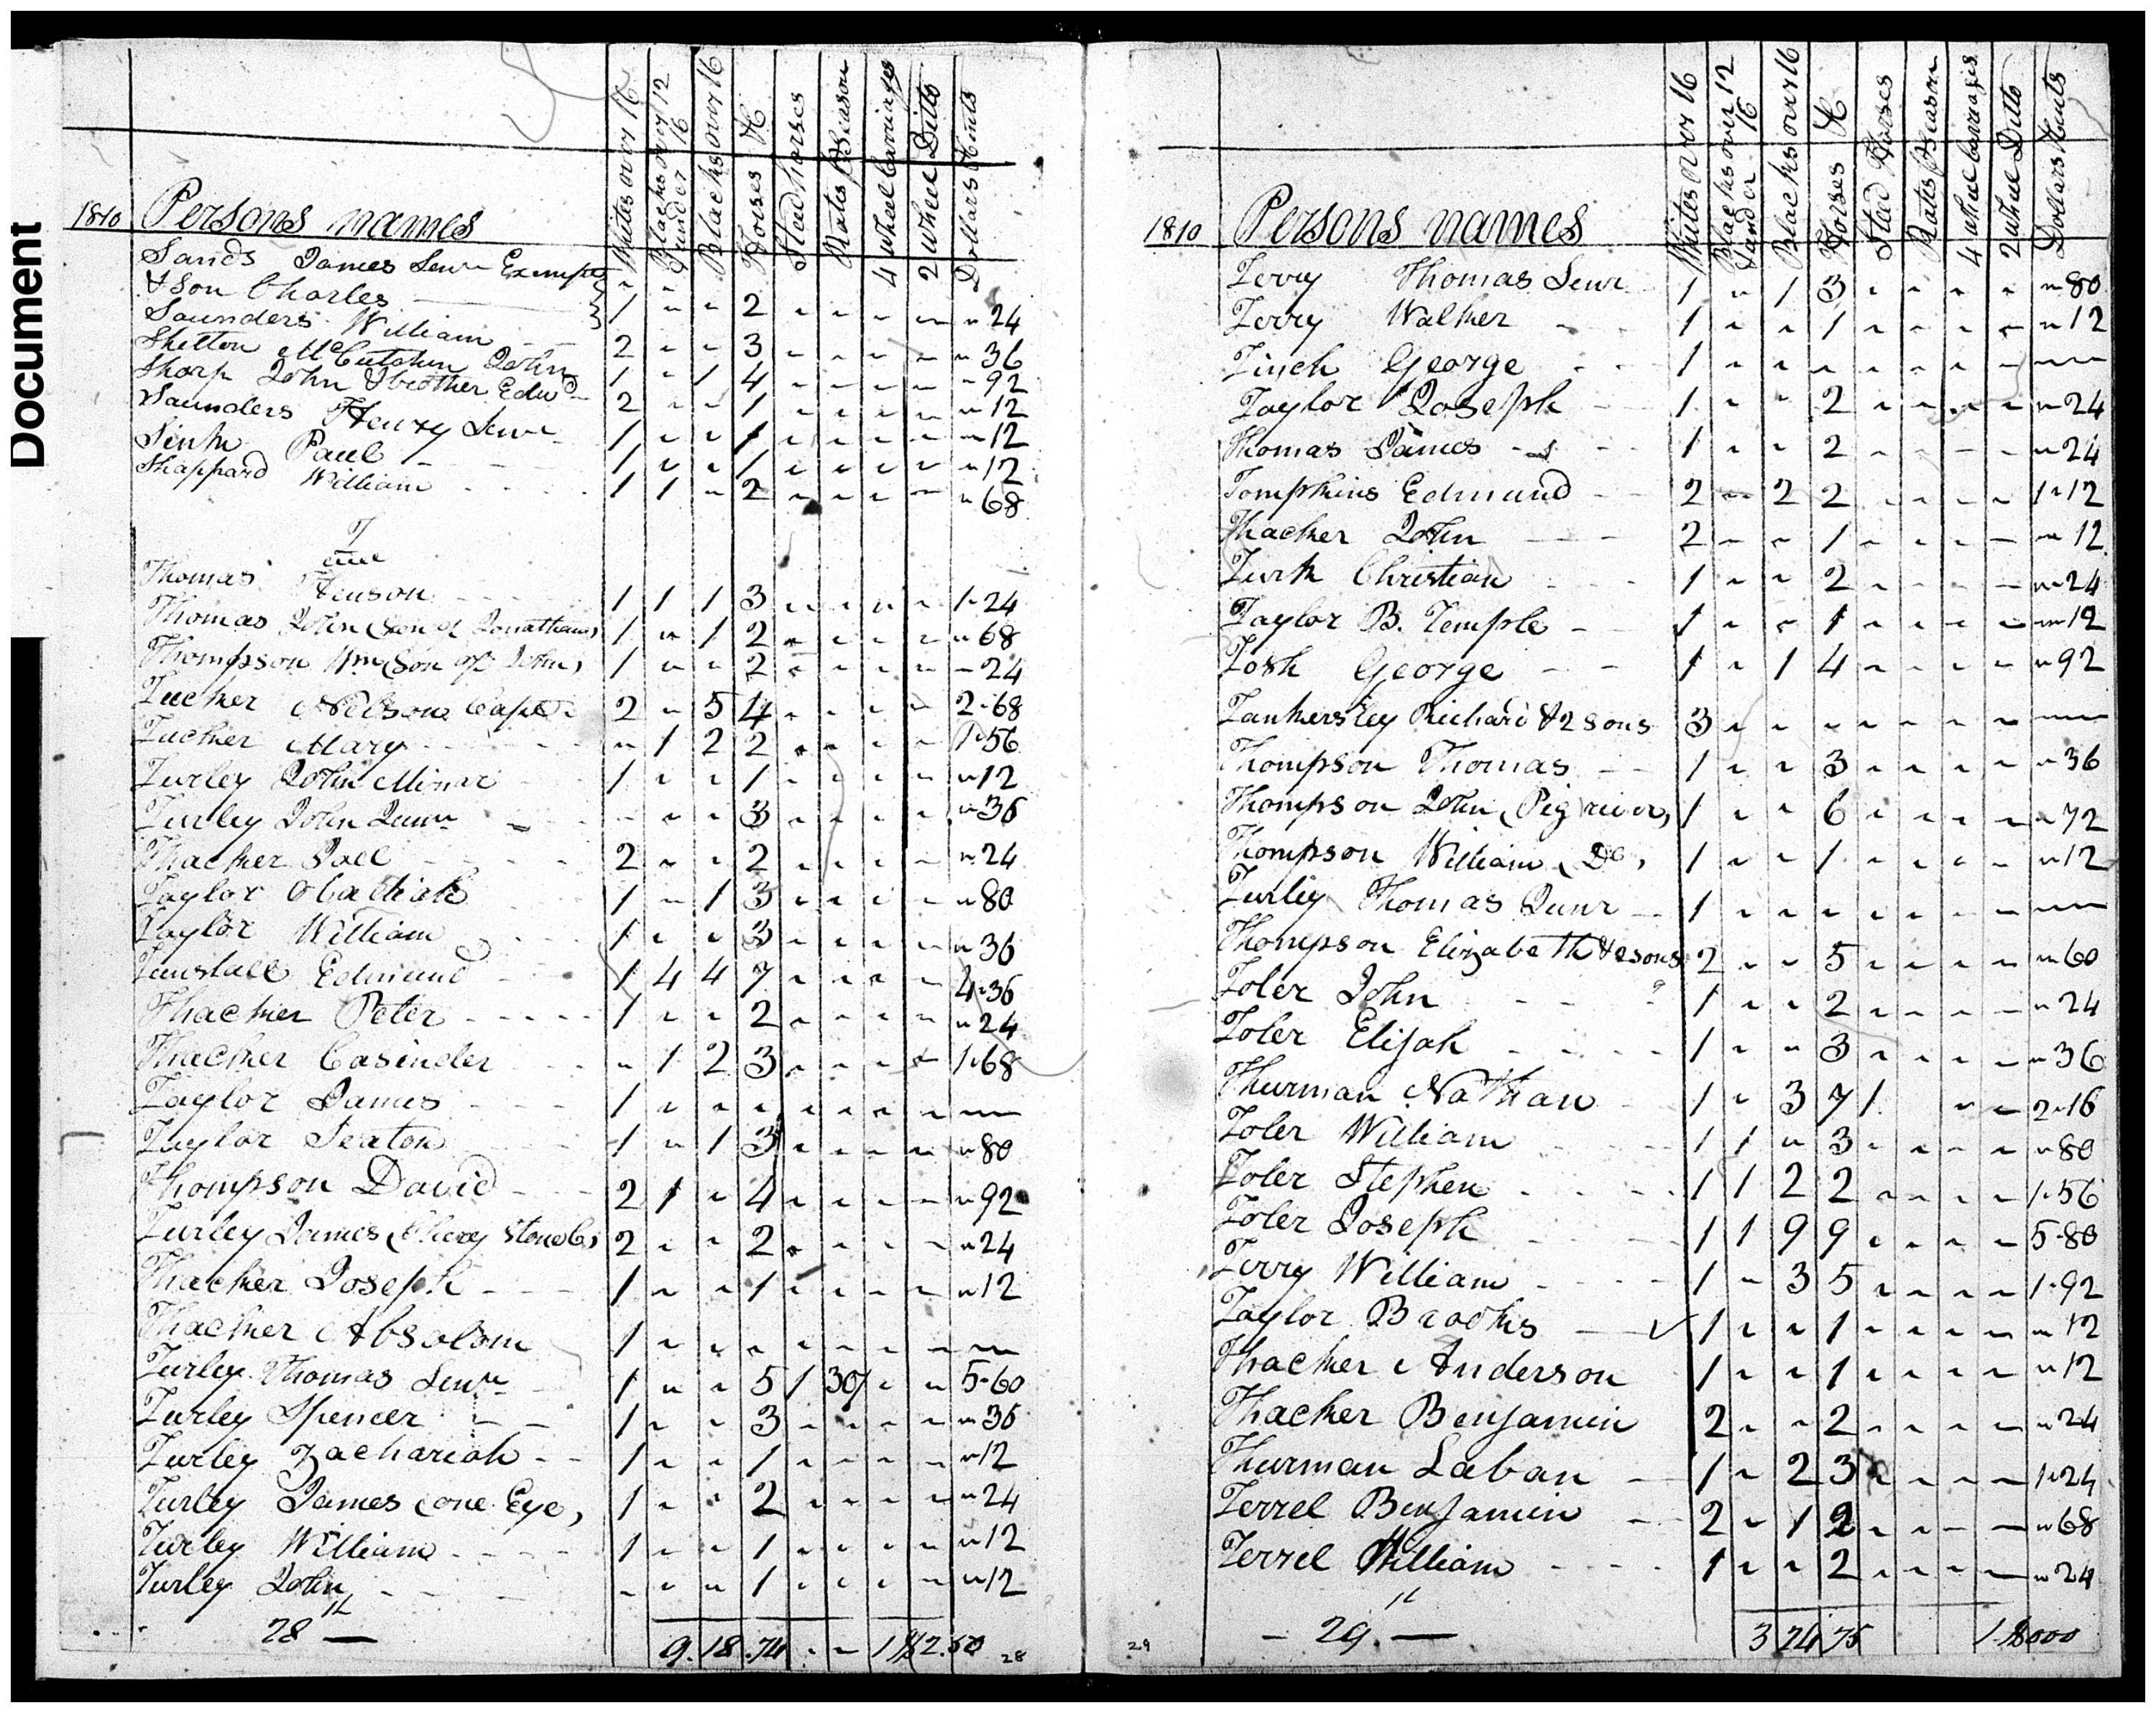 Document
1810 Persons names
Whites over 16
Blacks over 12 & under 16
Blacks over 16
Horses &c
Stud horses
Rates P Season
4 wheel Carriages
2 wheel Ditto
Dollars & Cents
Sands James Senr Exempt
& Son Charles 1 2 24
Saunders William 2 3 36
Shelton McCutchen John 1 1 4 92
Sharp John & brother Edwd 2 1 12
Saunders Henry Senr 1 1 12
Sink Paul 1 1 12
Shappard William 1 1 2 68
T
Thomas Henson 1 1 1 3 1-24
Thomas John (Son of Jonathan) 1 1 2 68
Thompson Wm (Son of John) 1 2 24
Tucker Nelson Capt 2 5 4 2-68
Tucker Mary 1 2 2 1-56
Turley John Minor 1 1 12
Turley John Junr 3 36
Thacker Joel 2 2 24
Taylor Obadiah 1 1 3 80
Taylor William 1 3 36
Tunstall Edmund 1 4 4 7 4-36
Thacker Peter 1 2 24
Thacker Casinder 1 2 3 1-68
Taylor James 1
Taylor Seaton 1 1 3 80
Thompson David 2 1 4 92
Turley James (Chery Stone Cr) 2 2 24
Thacker Joseph 1 1 12
Thacker Absolom 1
Turley Thomas Senr 1 5 1 30/ 5-60
Turley Spencer 1 3 36
Turley Zachariah 1 1 12
Turley James (one Eye) 1 2 24
Turley William 1 1 12
Turley John 1 12
28
9.18.74
28
1810 Persons names
Whites over 16
Blacks over 12 & under 16
Blacks over 16
Horses &c
Stud Horses
Rates P Season
4 wheel Carrages
2 Wheel Ditto
Dollars & Cents
Terry Thomas Senr 1 1 3 80
Terry Walker 1 1 12
Tinch George 1
Taylor Joseph 1 2 24
Thomas James 1 2 24
Tompkins Edmund 2 2 2 1-12
Thacker John 2 1 12
Turk Christian 1 2 24
Taylor B. Temple 1 1 12
Tosh George 1 1 4 92
Tankersley Richard & 2 sons 3
Thompson Thomas 1 3 36
Thompson John (Pig river) 1 6 72
Thompson William (Do) 1 1 12
Turley Thomas Junr 1
Thompson Elizabeth & 2 sons 2 5 60
Toler John 1 2 24
Toler Elijah 1 3 36
Thurman Nathan 1 3 7 1 2-16
Toler William 1 1 3 80
Toler Stephen 1 1 2 2 1-56
Toler Joseph 1 1 9 9 5-80
Terry William 1 3 5 1-92
Taylor Brooks 1 1 12
Thacker Anderson 1 1 12
Thacker Benjamin 2 2 24
Thurman Laban 1 2 3 1-24
Terrel Benjamin 2 1 2 68
Terrel William 1 2 24
29
3 24 75
29